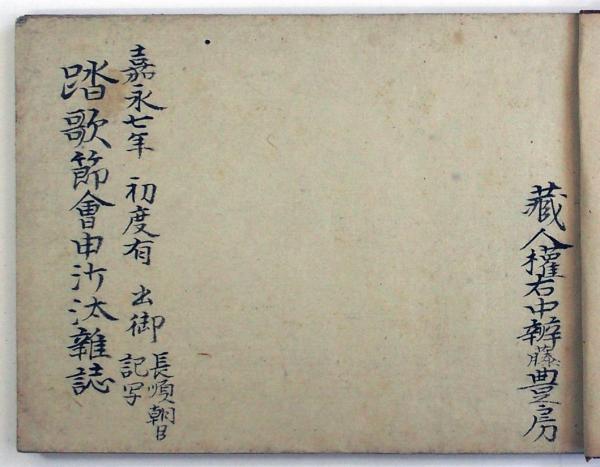 藏人權右中辨藤豊房
嘉永七年 初度有 出御
長順朝臣
記写
踏歌節會申沙汰雜誌